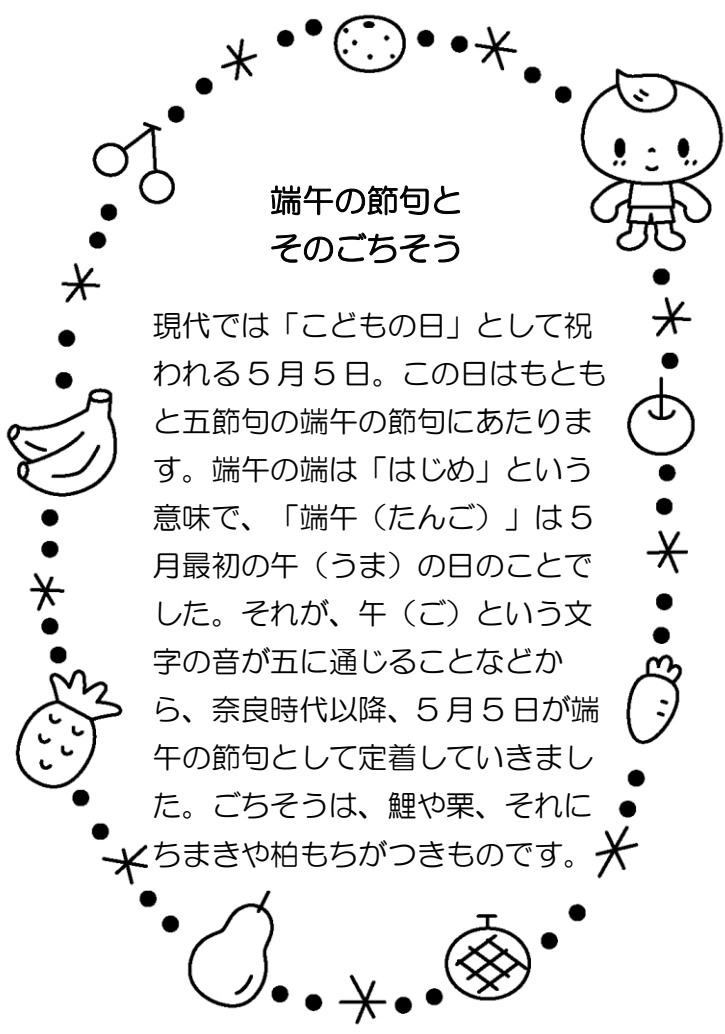 端午の節句と
そのごちそう
現代では「こどもの日」として祝
われる５月５日。この日はもとも
と五節句の端午の節句にあたりま
す。端午の端は「はじめ」という
意味で、「端午（たんご）」は５
月最初の午（うま）の日のことで
した。それが、午（ご）という文
字の音が五に通じることなどか
ら、奈良時代以降、５月５日が端
午の節句として定着していきまし
た。ごちそうは、鯉や栗、それに
ちまきや柏もちがつきものです。